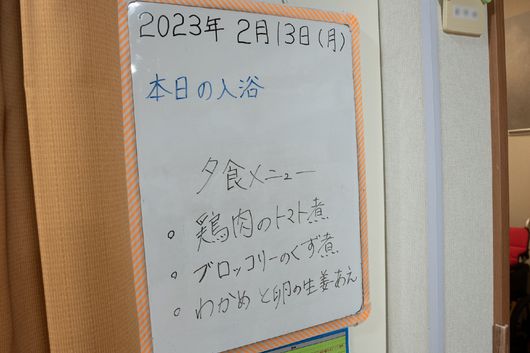 2023年 2月13日(月)
本日の入浴
夕食メニュー
。鶏肉のトマト煮
。ブロッコリーのくず煮
。わかめと卵の生姜あえ